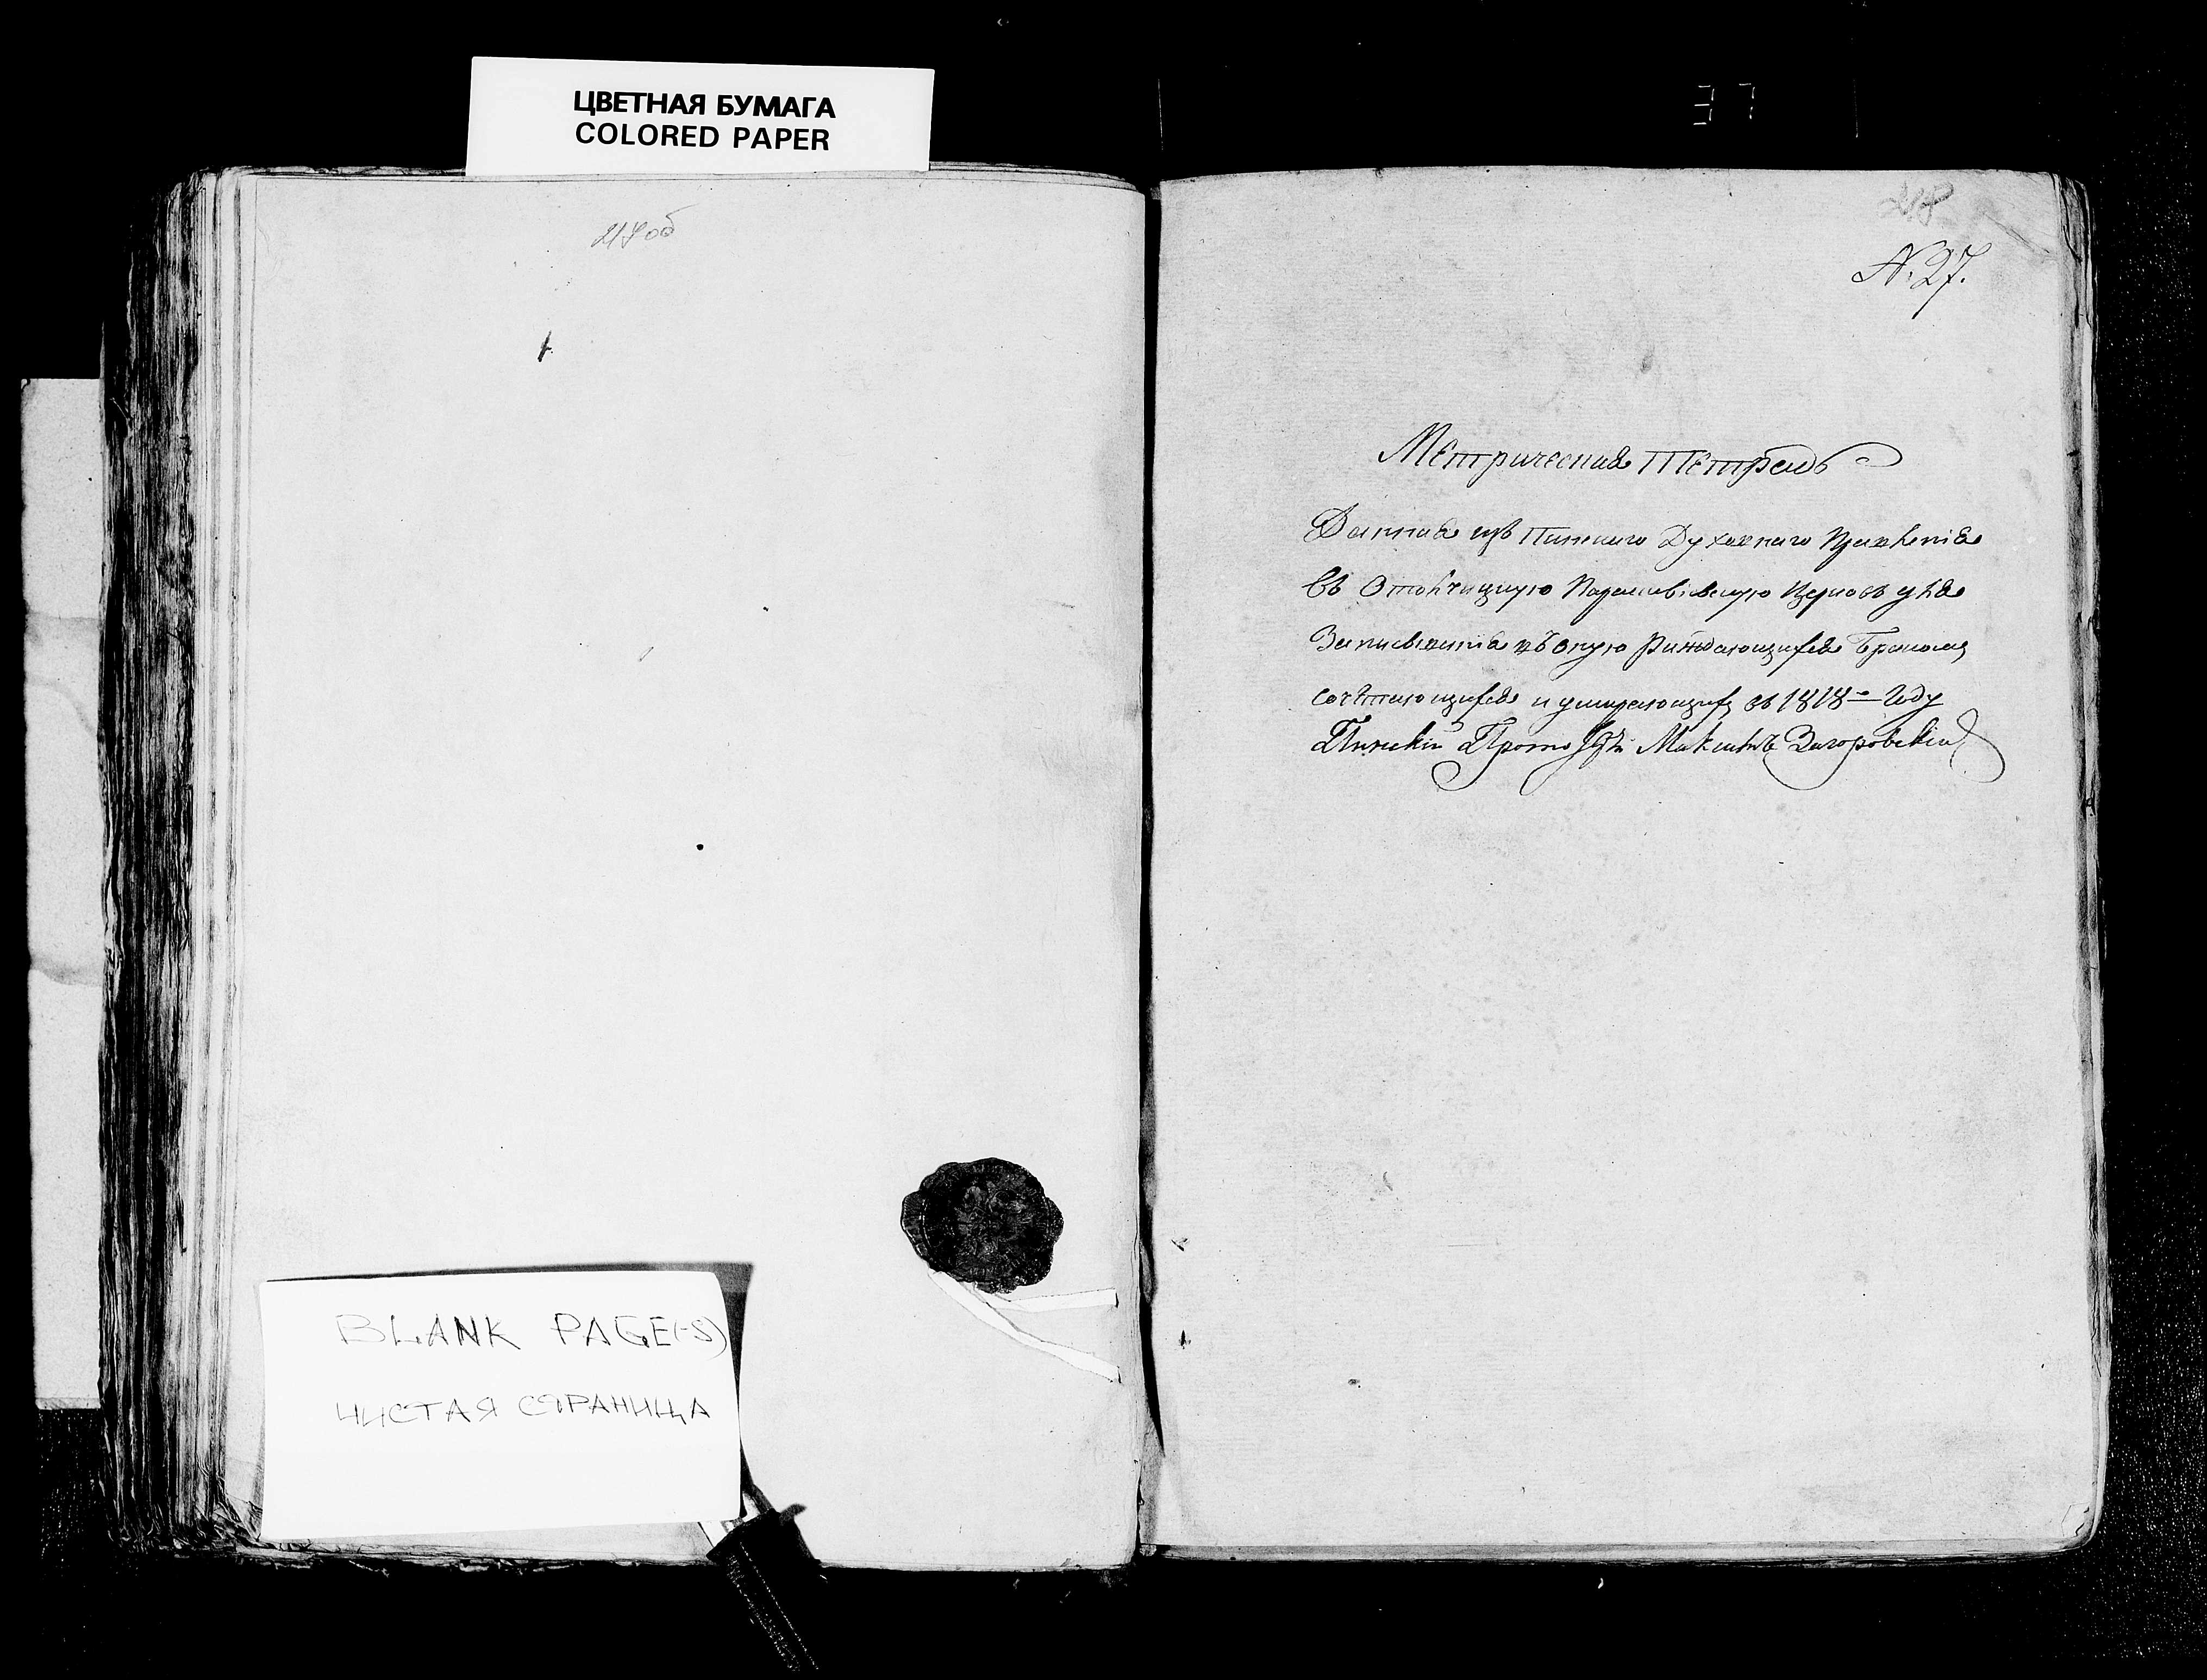 ЦВЕТНАЯ БУМАГА
COLORED PAPER
37
217об
218
N. 27.
Метрическая Тетрадь
Данная изъ Пинскаго Духовнаго Правленія
въ Отолчицкую Параскевіевскую Церковь для
Записыванія въ оную Раждающихся Бракомъ
сочетающихся и умирающихъ въ 1818-м Году
Пинскій Прото Максимъ Загоровскій
BLANK PAGE(-S)
ЧИСТАЯ СТРАНИЦА